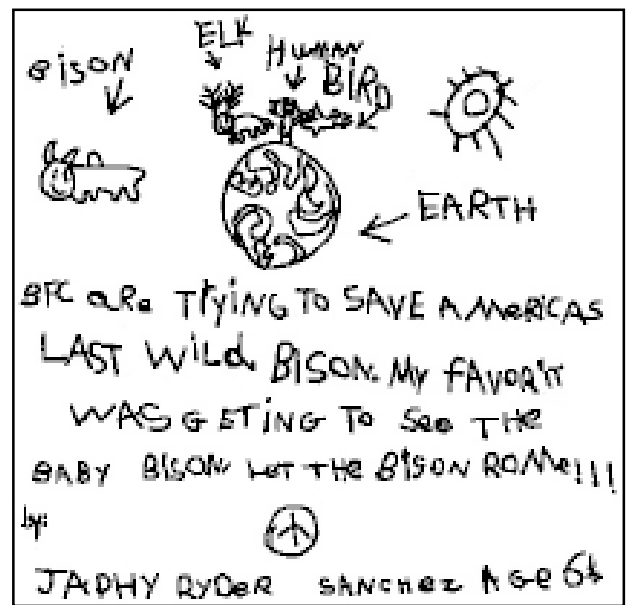 ELK
HUMAN
BISON
BIRD
EARTH
BFC aRe TrYING TO SAVE AMeRICAS
LAST WiLd BISON. MY FAVORIT
WAS GETiNG To See THe
BABY BISON. LET THe BISON ROMe!!!
by:
JAPHY RYDeR SANCHez AGe 6½